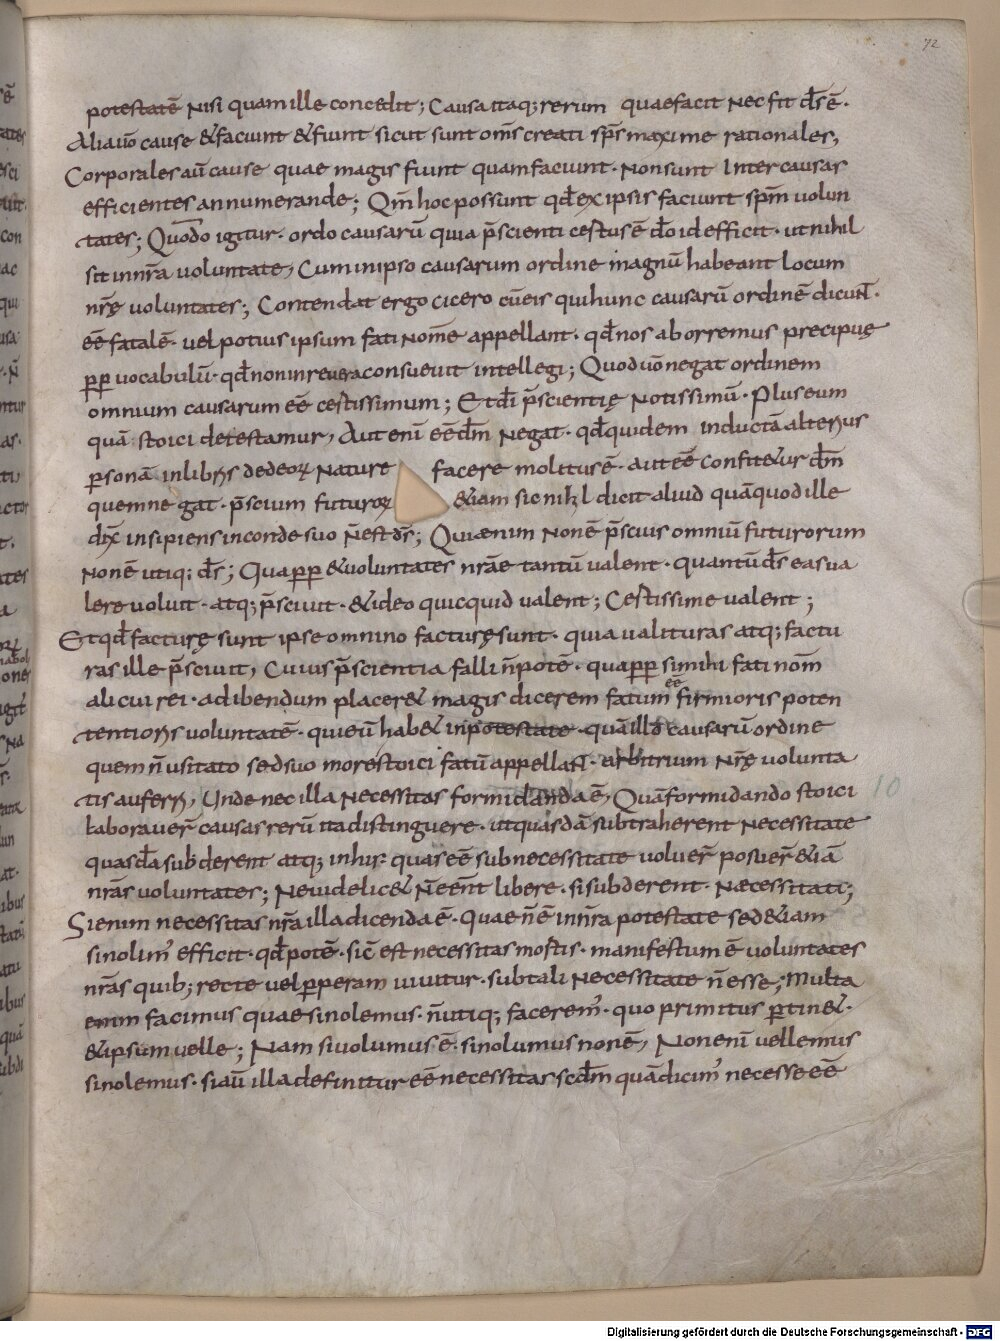 72
potestatē Nisi quam ille concedit; Causa itaq; rerum quae facit Nec fit d̅s ē.
Aliae uō cause & faciunt & fiunt sicut sunt om̅s creati sp̅s maxime rationales,
Corporales aū cause quae magis fiunt quam faciunt. Non sunt Inter causas
efficientes annumerande; Qm̅ hoc possunt qd̅ ex ipsis faciunt sp̅m uolun
tates; Quom̅o igitur. ordo causarū qui a p̅scienti certus ē d̅o id efficit. ut nihil
sit in nr̅a uoluntate, Cum in ipso causarum ordine magnū habeant Locum
nr̅ę uoluntates; Contendat ergo cicero cū eis qui hunc causarū ordinē dicunt.
ee̅ fatalē. uel potius ipsum fati Nom̅e appellant. qd̅ nos aborremus precipuę
p̲p̲ uocabulū. qd̅ non in re uera consueuit intellegi; Quod uō negat ordinem
omnium causarum ee̅ certissimum; Et d̅i p̅scientię Notissimū. Plus eum
quā stoici detestamur, Aut enī ee̅ d̅m Negat. qd̅ quidem inducta alterius
p̲sonā in libris de deoꝝ Nature facere molitus ē. aut ee̅ confitetur d̅m
quem negat. p̅scium futuroꝝ &iam sic nihil dicit aliud quā quod ille
dix̅ insipiens in corde suo n̅ est d̅s; Qui enim Non ē p̅scius omniū futurorum
Non ē utiq; d̅s; Qua p̲p̲ & uoluntates nr̅ae tantū ualent. quantū d̅s eas ua
lere uoluit. atq; p̅sciuit. & ideo quicquid ualent; Certissime ualent;
Et qd̅ facturę sunt ipse omnino facturę sunt. quia ualituras atq; factu
ras ille p̅sciuit, Cuius p̅scientia falli n̅ potē. qua p̲p̲ si mihi fati nom̅
alicui rei. adibendum placer& magis dicerem fatum ee̅ firmioris poten
tentioris uoluntatē. qui eū hab& in potestate. quā illo causarū ordine
quem n̅ usitato sed suo more stoici fatū appellant. arbitrium Nr̅ę uolunta
tis auferri, Unde nec illa Necessitas formidanda ē, Quā formidando stoici
laborauer̅ causas rerū ita distinguere. ut quasdā subtraherent Necessitate
quasdā subderent atq; in his quas ee̅ sub necessitate uoluer̅ posuer̅ &iā
nr̅as uoluntates; Ne uidelic& n̅ ee̅nt libere. si subderent. Necessitati;
Si enim necessitas nr̅a illa dicenda ē. quae n̅ ē in nr̅a potestate sed &iam
si nolim̅ efficit. qd̅ potē. sic̅ est necessitas mortis. manifestum ē uoluntates
nr̅as quib; recte uel p̲peram uiuitur. sub tali Necessitate n̅ esse; Multa
enim facimus quae si nolemus. n̅ utiq; facerem̅. quo primitus p̲tin&.
& ipsum uelle; Nam si uolumus ē. si nolumus non ē, Non enī uellemus
si nolemus. si aū illa definitur ee̅ necessitas scd̅m quā dicim̅ necesse ee̅
10
Digitalisierung gefördert durch die Deutsche Forschungsgemeinschaft - DFG